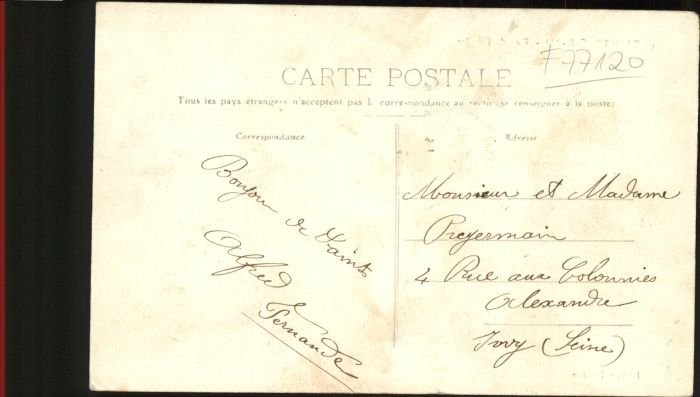 F77120
CARTE POSTALE
Tous les pays étrangers n'acceptent pas la correspondance au recto, se renseigner à la poste
Correspondance
Adresse
Bonjour de Saint
Alfred
Fernande
Monsieur et Madame
Preyermain
4 Rue aux Colonnies
Alexandre
Ivry (Seine)